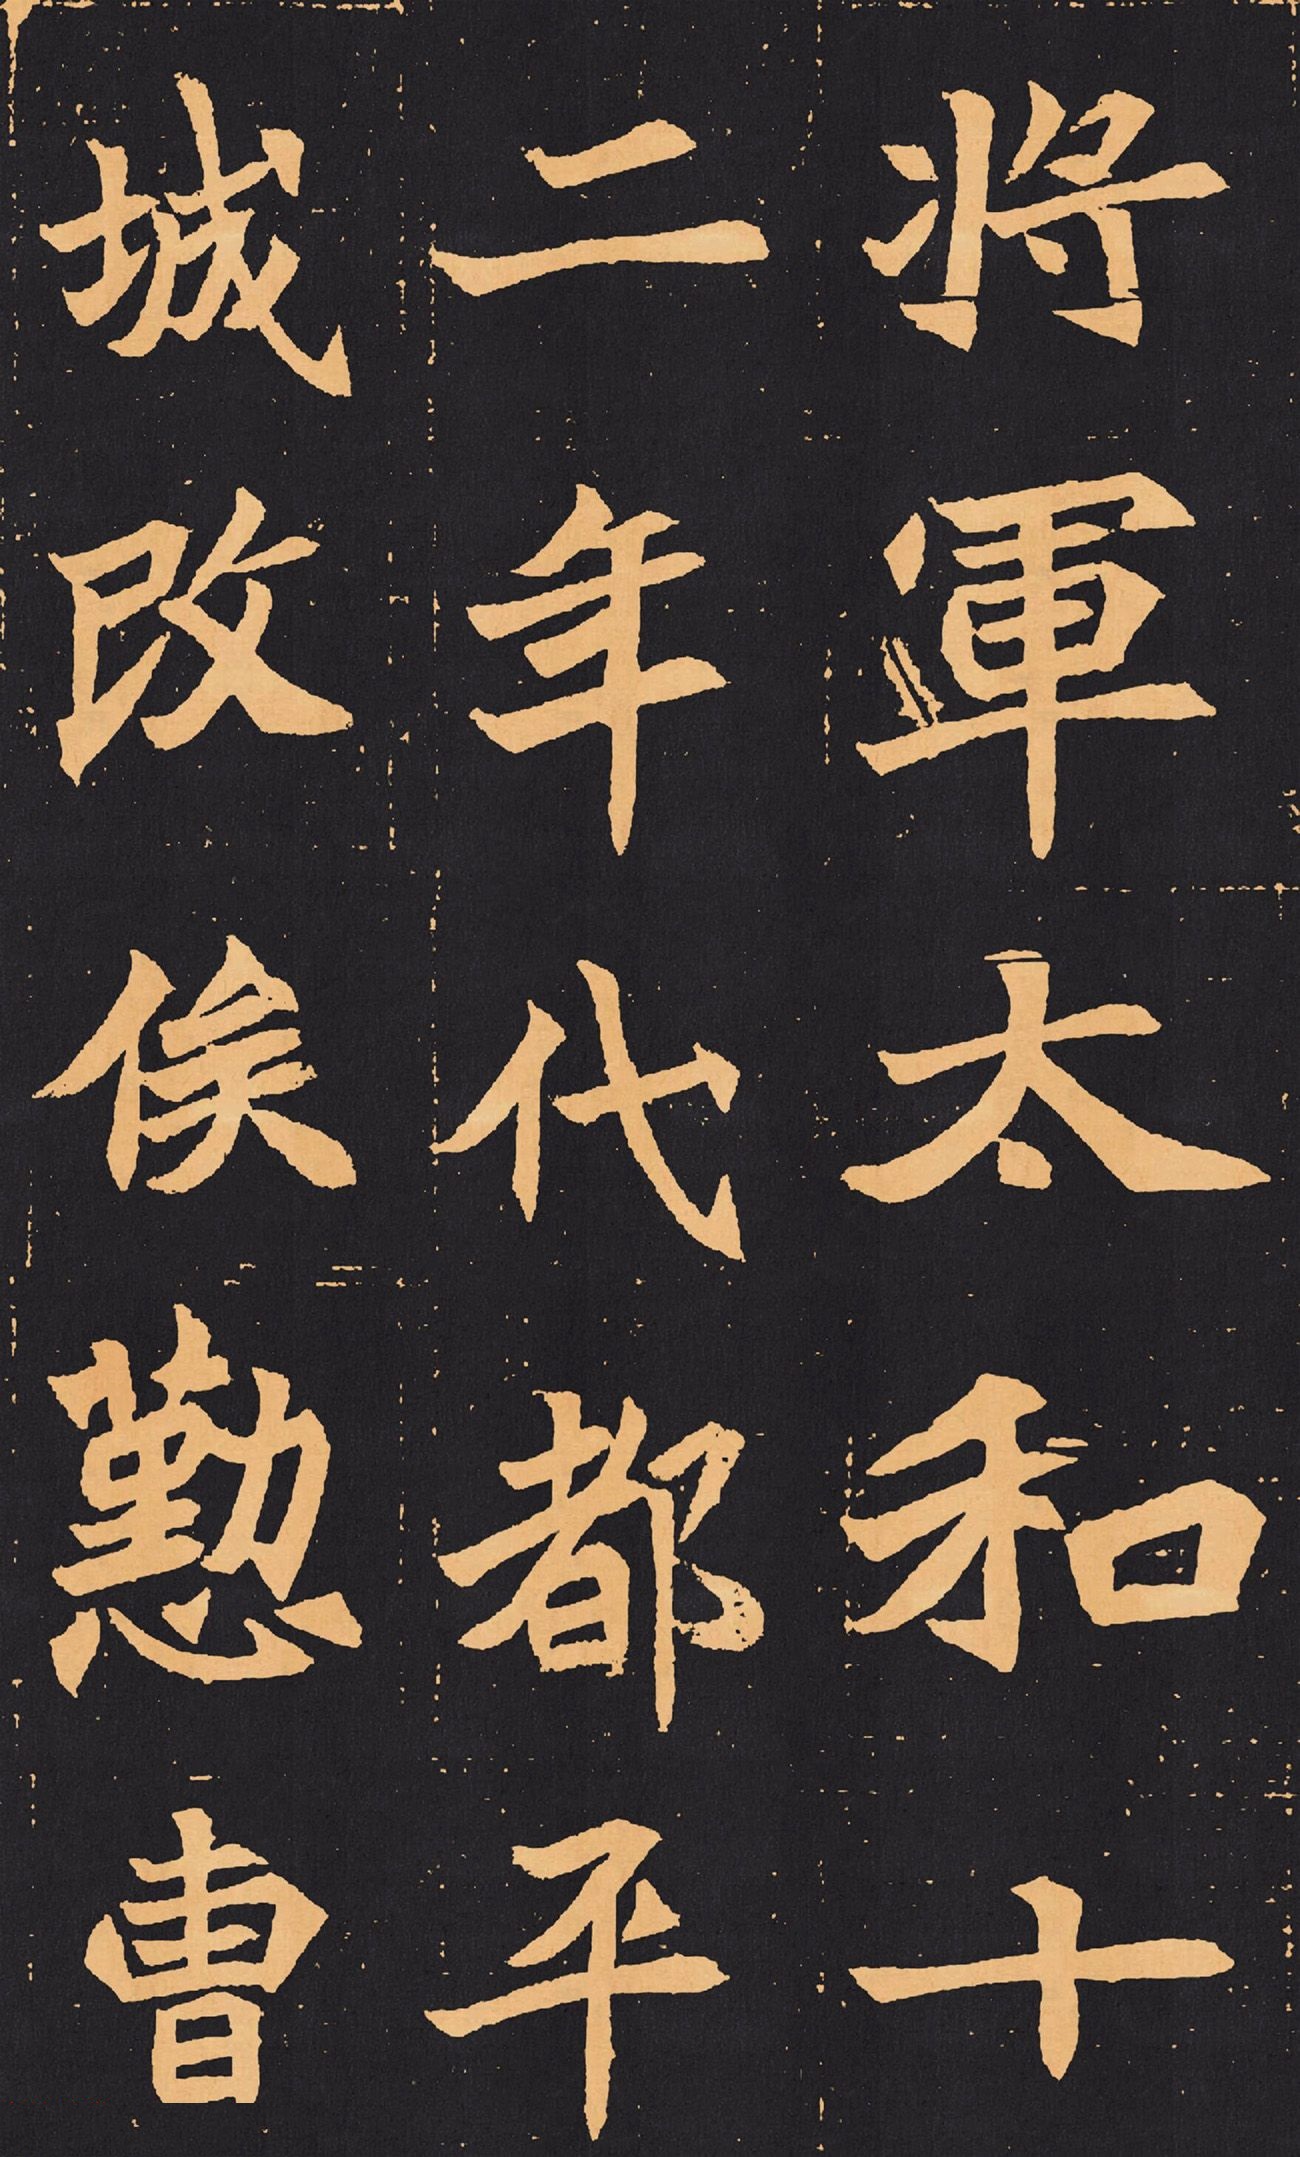 將軍太和十
二年代都平
城改俟懃曹